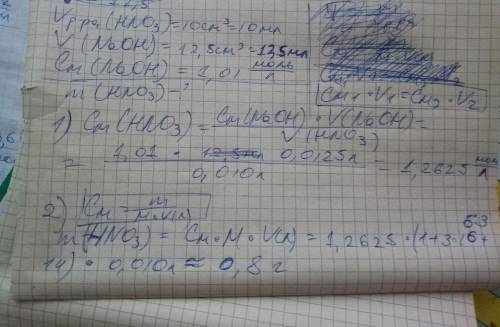 V р-ра (HNO₃) = 10 см³ = 10 мл
V (NaOH) = 12,5 см³ = 12,5 мл
Cм (NaOH) = 1,01 моль/л
m (HNO₃) - ?
Cм₁ · V₁ = Cм₂ · V₂
1) Cм (HNO₃) = Cм(NaOH) · V(NaOH) / V(HNO₃) =
= 1,01 · 0,0125л / 0,010л = 1,2625 мол/л
2) Cм = m / M · V(л)
63
m(HNO₃) = Cм · M · V(л) = 1,2625 · (1+3·16+
14) · 0,010л ≈ 0,8 г